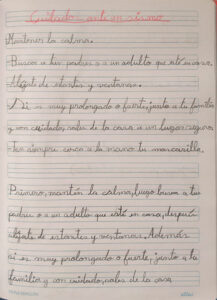 Cuidado ante un sismo
Mantener la calma.
Busca a tus padres o a un adulto que esté en casa.
Aléjate de estantes y ventanas.
Si es muy prolongado o fuerte, junto a tu familia
y con cuidado, sales de la casa a un lugar seguro,
ten siempre cerca a la mano tu mascarilla.
Primero, mantén la calma, luego busca a tus
padres o a un adulto que esté en casa, después
aléjate de estantes y ventanas. Además
si es muy prolongado o fuerte, junto a tu
familia y con cuidado, sales de la casa